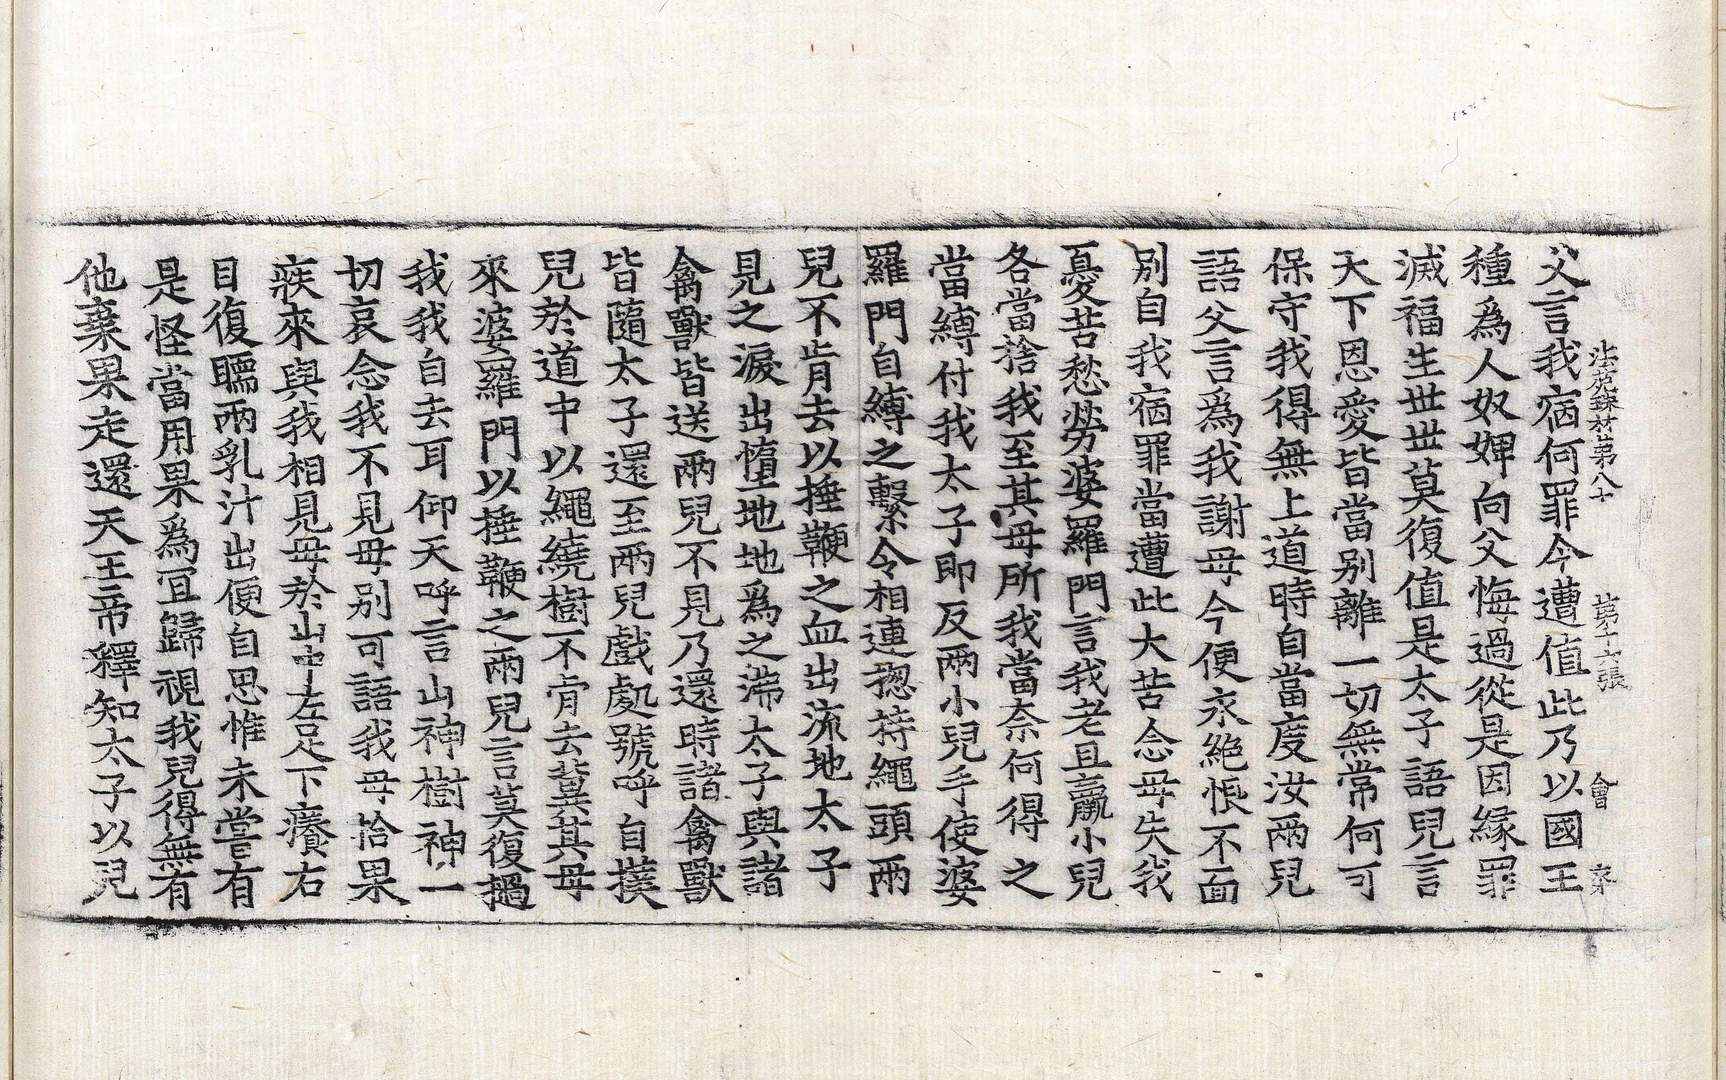 法苑珠林第八十 第十六張 會
父言我宿何罪今遭值此乃以國王
種為人奴婢向父悔過從是因緣罪
滅福生世世莫復值是太子語兒言
天下恩愛皆當別離一切無常何可
保守我得無上道時自當度汝兩兒
語父言為我謝母今便永絕恨不面
別自我宿罪當遭此大苦念母失我
憂苦愁勞婆羅門言我老且羸小兒
各當捨我至其母所我當奈何得之
當縛付我太子即反兩小兒手使婆
羅門自縛之繫令相連揔持繩頭兩
兒不肯去以捶鞭之血出流地太子
見之淚出墮地地為之沸太子與諸
禽獸皆送兩兒不見乃還時諸禽獸
皆隨太子還至兩兒戲處號呼自撲
兒於道中以繩繞樹不肯去冀其母
來婆羅門以捶鞭之兩兒言莫復撾
我我自去耳仰天呼言山神樹神一
切哀念我不見母別可語我母捨果
疾來與我相見母於山中左足下癢右
目復瞤兩乳汁出便自思惟未嘗有
是怪當用果為宜歸視我兒得無有
他棄果走還天王帝釋知太子以兒